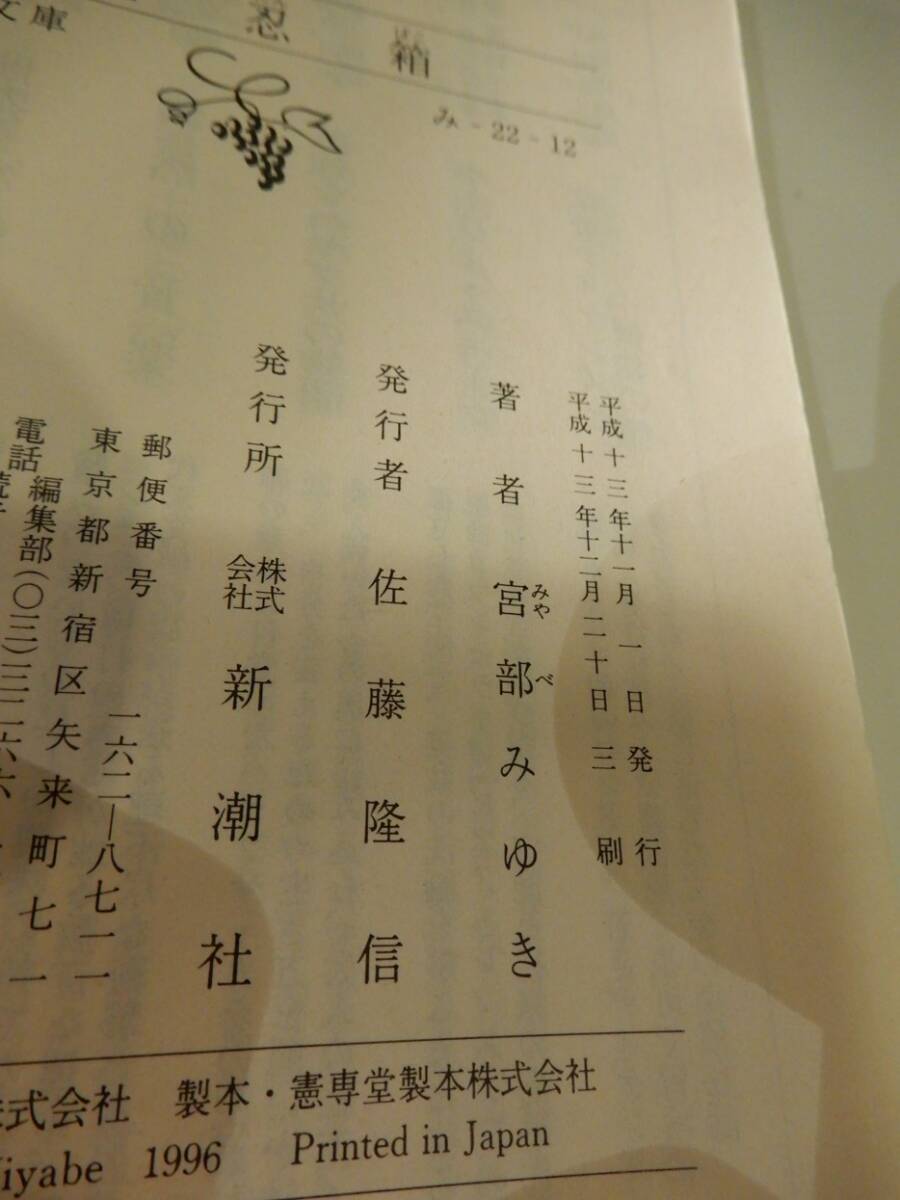 文庫
忍箱
み-22-12
平成十三年十一月一日発行
平成十三年十二月二十日三刷
著者 宮部みゆき
みやべ
発行者 佐藤隆信
発行所 株式会社 新潮社
郵便番号 一六二―八七一一
東京都新宿区矢来町七一
電話 編集部(〇三)三二六六
株式会社 製本・憲専堂製本株式会社
Miyabe 1996 Printed in Japan